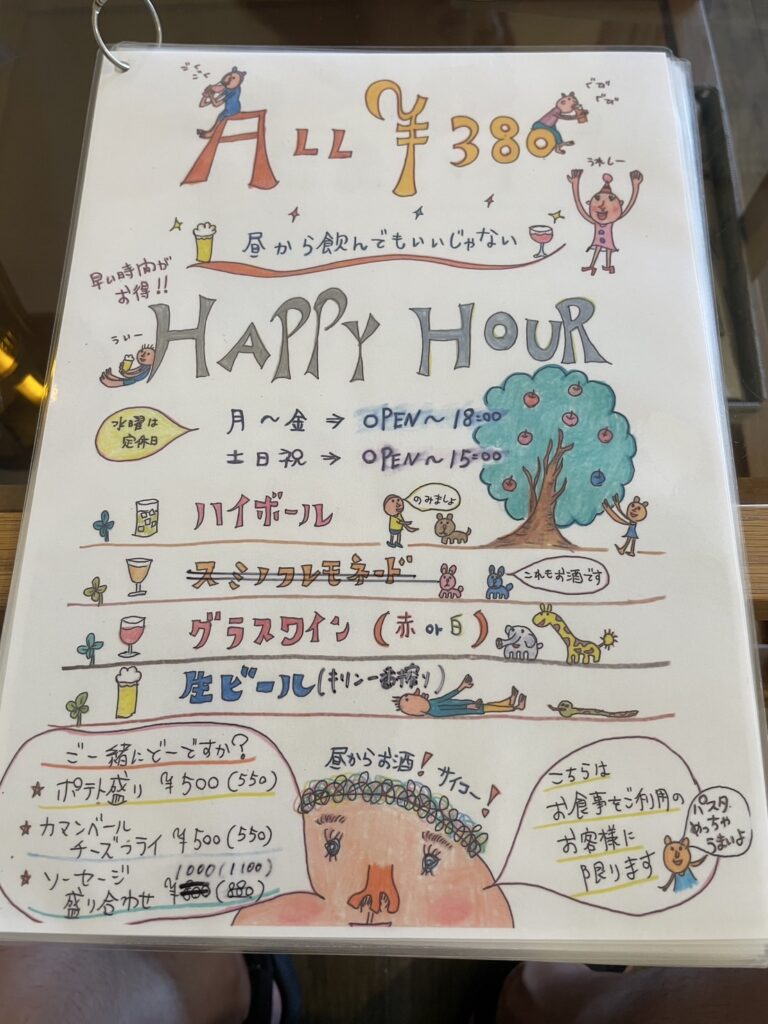 ごくごく
ALL ¥380
うれしー
昼から飲んでもいいじゃない
早い時間が
お得!!
うぃー
HAPPY HOUR
水曜は
定休日
月〜金 ⇒ OPEN〜18:00
土日祝 ⇒ OPEN〜15:00
ハイボール
のみましょ
スミノフレモネード
これもお酒です
グラスワイン (赤 or 白)
生ビール(キリン一番搾り)
ご一緒にどーですか?
★ ポテト盛り ¥500(550)
★ カマンベール
チーズフライ ¥500(550)
★ ソーセージ 1000(1100)
盛り合わせ ¥800(880)
昼からお酒! サイコー!
こちらは
お食事をご利用の
お客様に
限ります
パスタ
めっちゃ
うまいよ